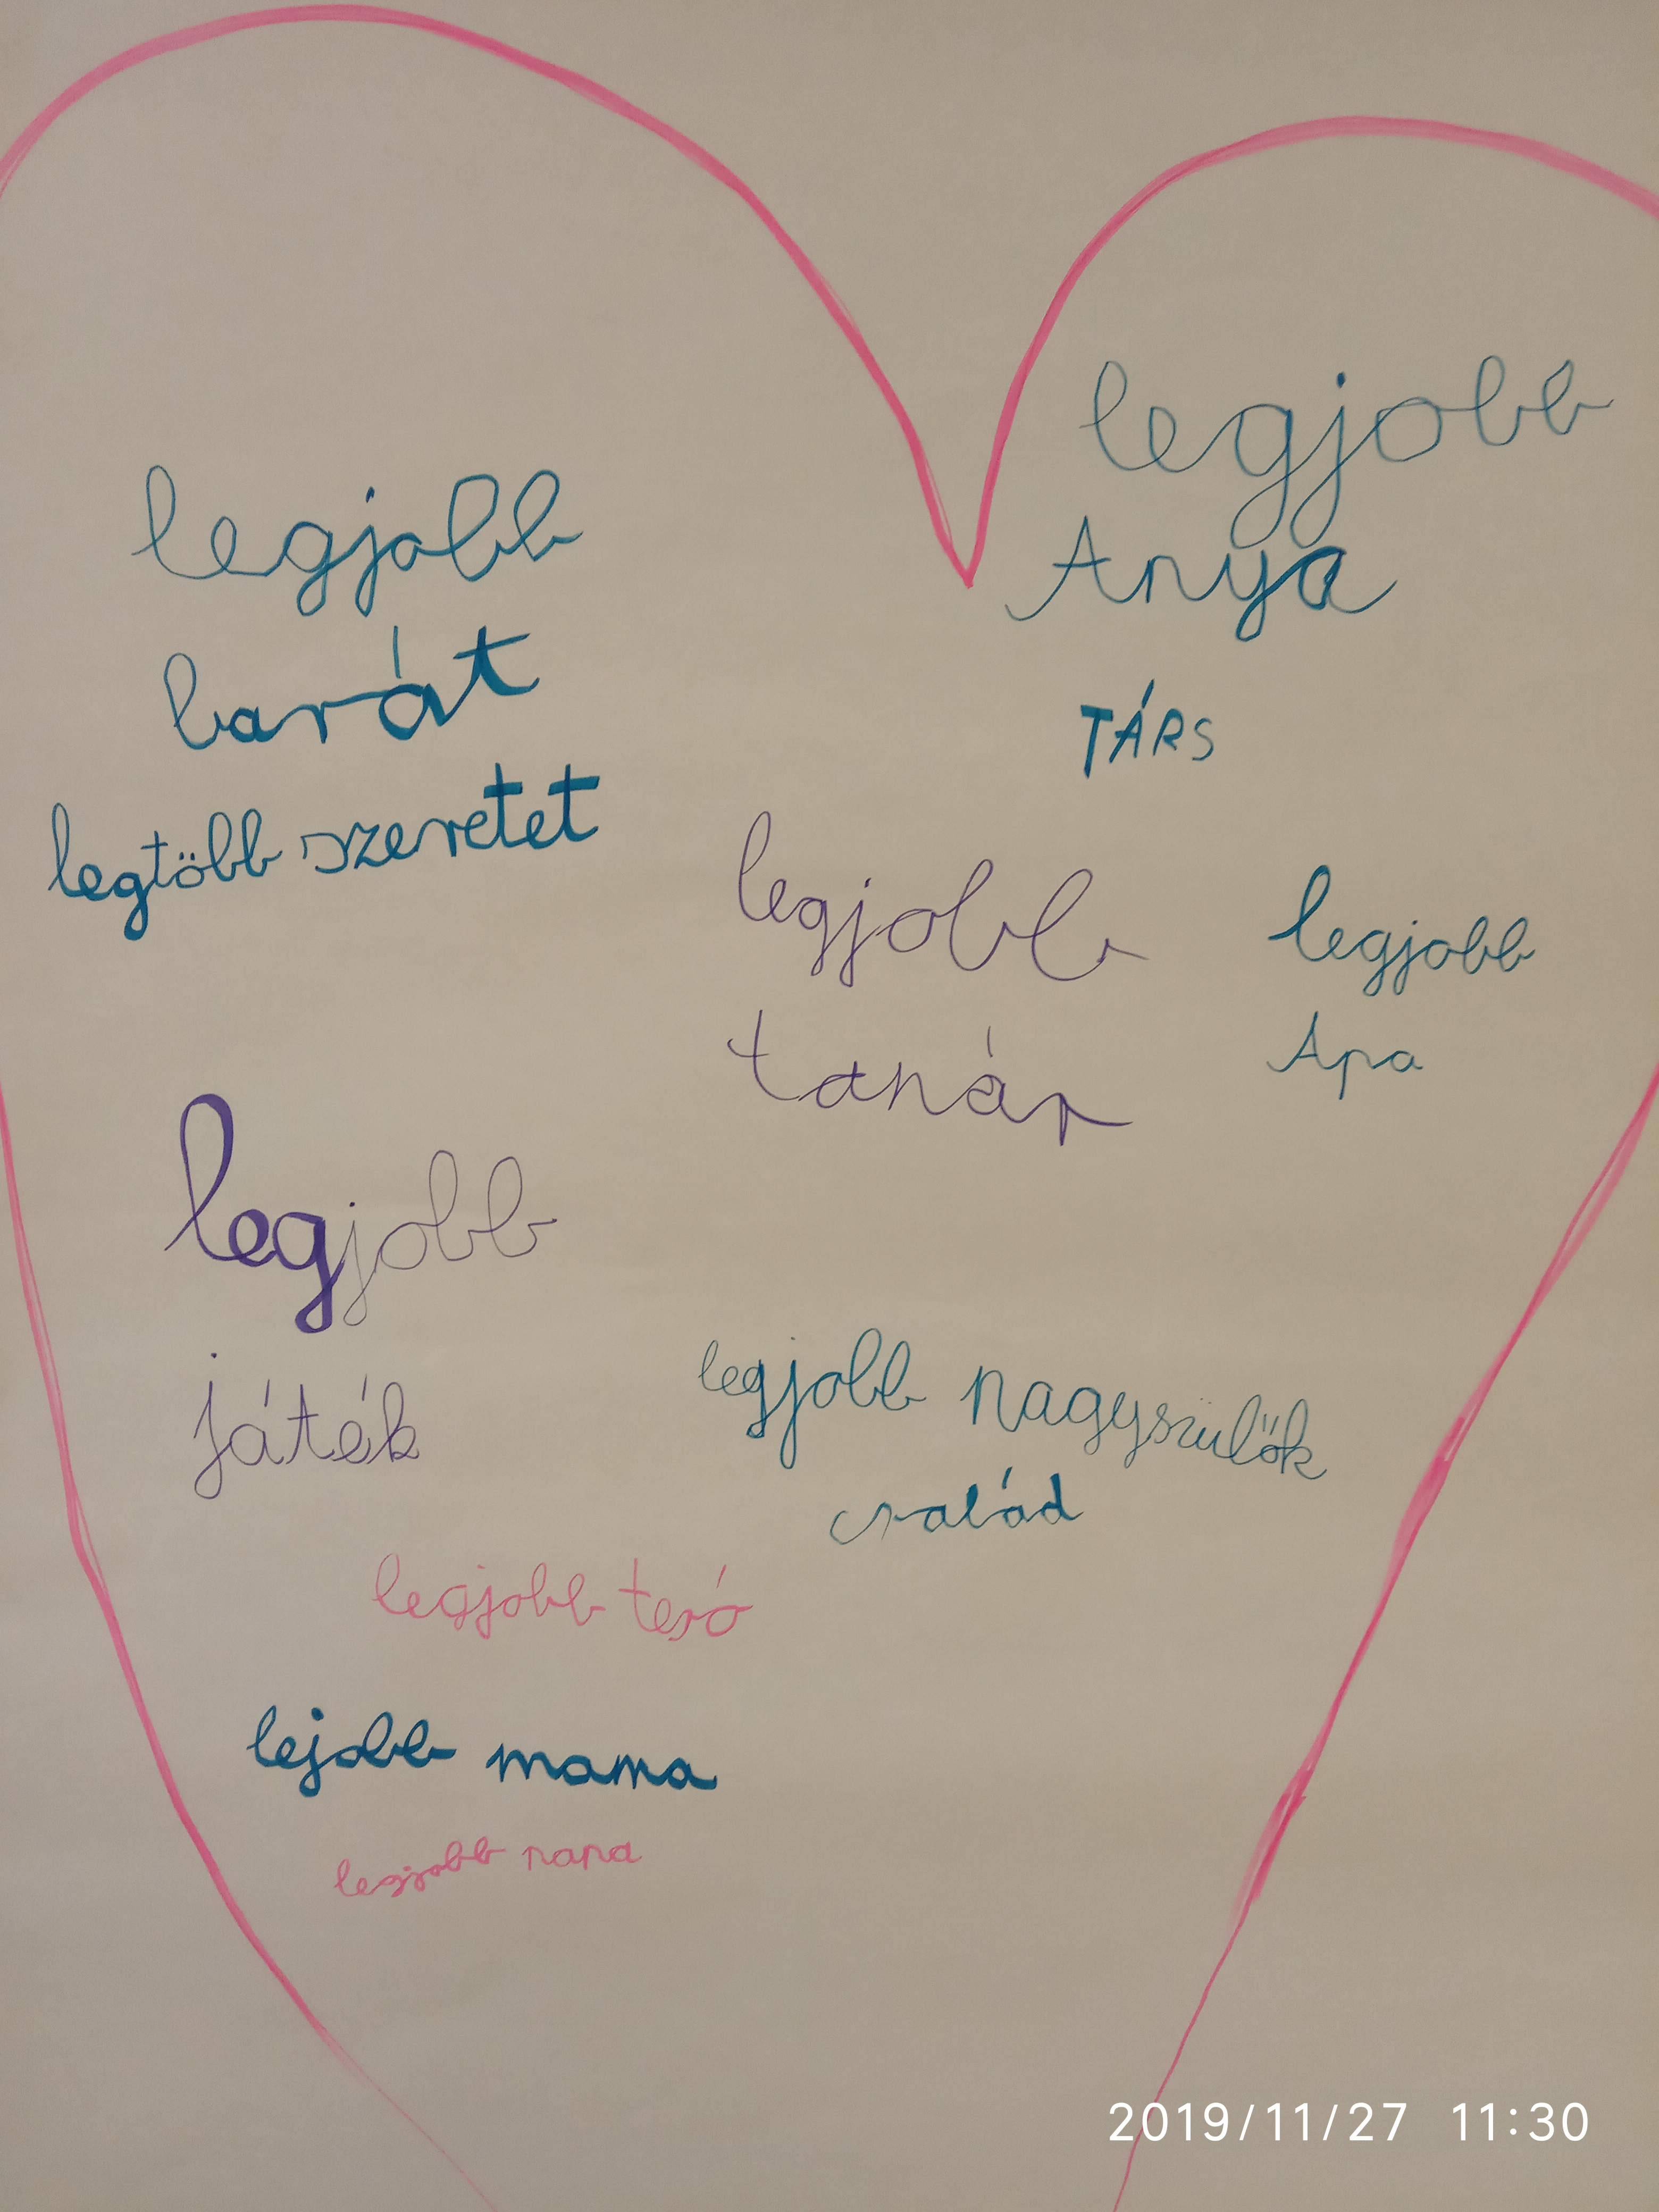 legjobb
Anya
TÁRS
legjobb
barát
legtöbb szeretet
legjobb
tanár
legjobb
Apa
legjobb
játék
legjobb nagyszülők
család
legjobb tesó
lejobb mama
legjobb papa
2019/11/27 11:30